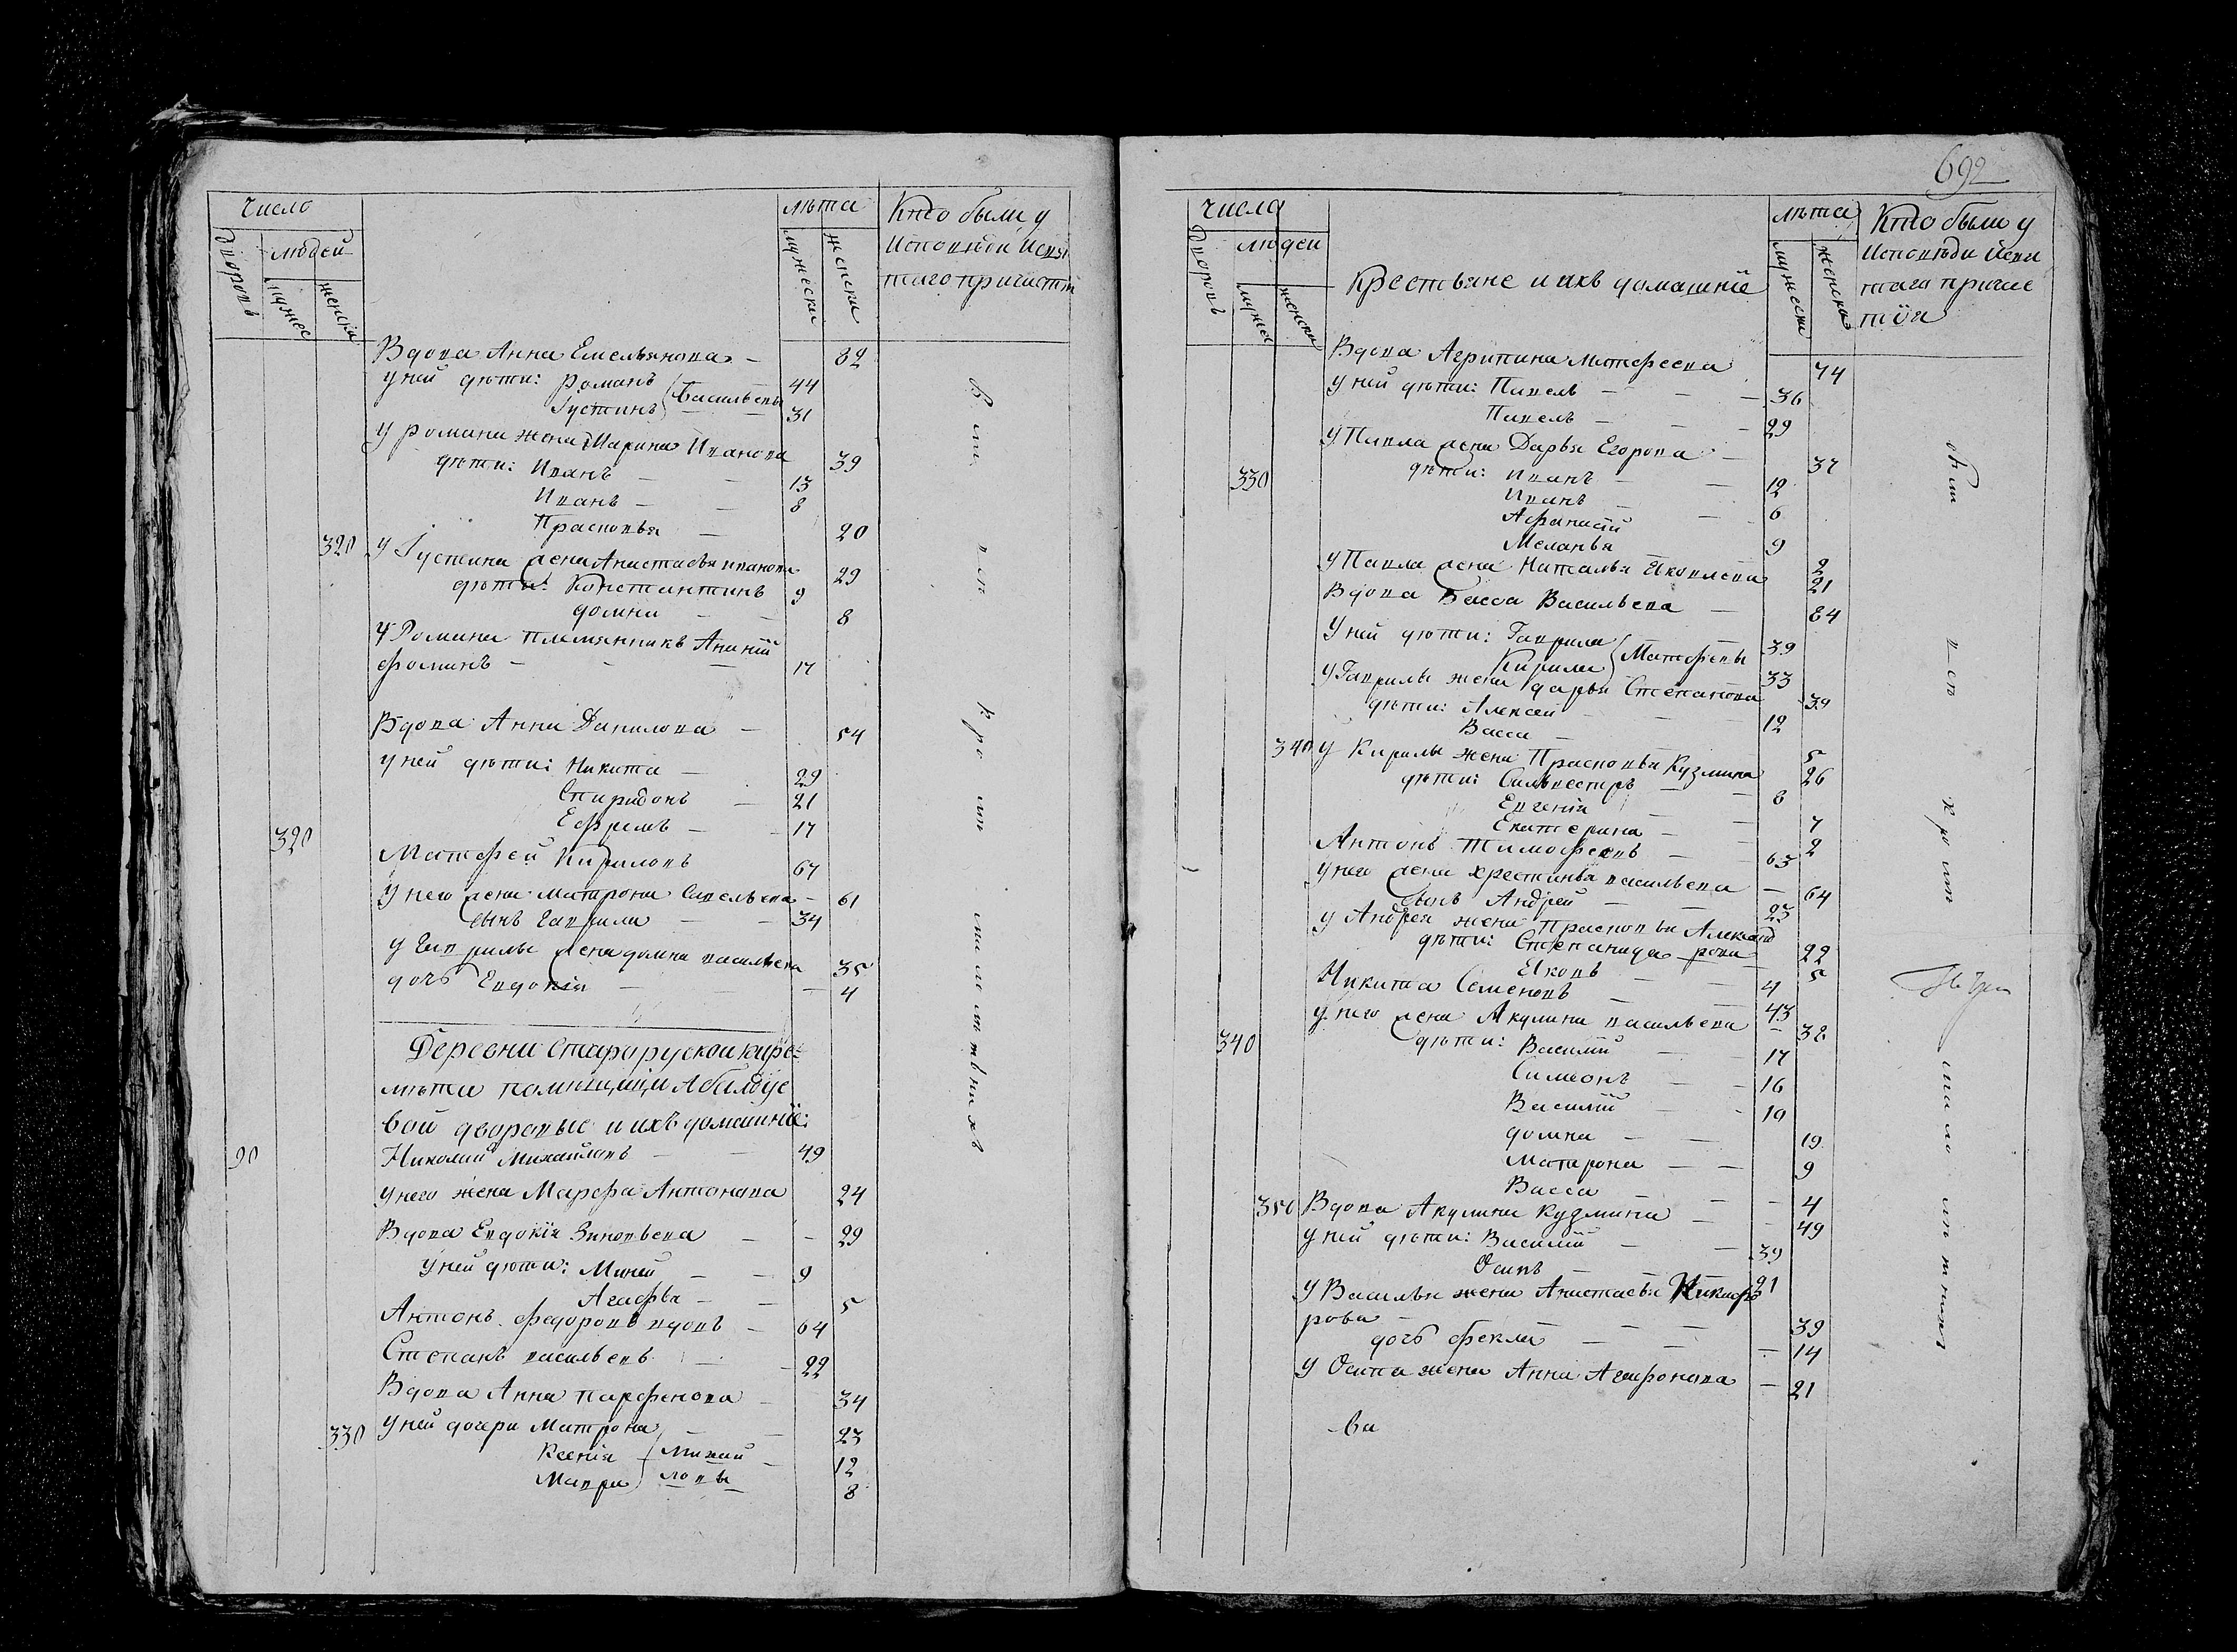 Число
лѣта
Кто были у
дворовъ
людей
мужес
женски
мужески
женски
Исповѣди и свя
таго причаст
Вдова Анна Емельянова – 82
У ней дѣти: Романъ 44
Густинъ Васильевы 31
У Романа жена Марина Иванова 39
дѣти: Иванъ – 13
Иванъ – 8
Прасковья – 20
320 У Густина жена Анастасья Иванова 29
дѣти: Константинъ 9
Домна – 8
У Романа племянникъ Ананiй
Фоминъ – 17
Вдова Анна Данилова – 54
У ней дѣти: Никита – 29
Спиридонъ – 21
320 Ефремъ – 17
Матфей Кириловъ 67
У него жена Матрона Савельева – 61
сынъ Гаврила – 34
У Гаврилы жена Домна Васильева 35
дочь Евдокiя – 4
Деревни Старорускои Каре-
мѣти помѣщицы Абалдуе
вой дворовые и ихъ домашнiе:
90 Николай Михайловъ – 49
У него жена Марфа Антонова 24
Вдова Евдокiя Зиновьева – 29
У ней дѣти: Миней – 9
Агафья – 5
Антонъ Федоровъ вдовъ – 64
Степанъ Васильевъ – 22
Вдова Анна Парфенова – 34
330 У ней дочери Матрона – 23
Ксенiя Михай 12
Мавра ловы 8
692
числа
лѣта
Кто были у
дворовъ
людей
мужес
женски
Крестьяне и ихъ домашнiе
мужески
женски
Исповѣди и свя
таго причас
тiя
Вдова Агрипина Матфеева 74
У ней дѣти: Павелъ – 36
Павелъ – 29
У Павла жена Дарья Егорова – 37
330 дѣти: Иванъ – 12
Иванъ – 6
Афанасiй 9
Меланья 2
У Павла жена Наталья Яковлева 21
Вдова Васса Васильева – 84
У ней дѣти: Гаврила 39
Кирила Матфѣевы 33
У Гаврилы жена Дарья Степанова 39
дѣти: Алексей – 12
Васса – 5
340 У Кирилы жена Прасковья Кузмина 26
дѣти: Сильвестръ – 8
Евгенiя – 7
Екатерина – 2
Антонъ Тимофеевъ – 63
У него жена Хрестинья Васильева – 64
сынъ Андрей – 23
У Андрея жена Прасковья Александ
рова 22
дѣти: Степанида 5
Яковъ – 4
Никита Семеновъ – 43
У него жена Акулина Васильева – 38
340 дѣти: Василiй – 17
Симеонъ – 16
Василiй – 10
Домна – 19
Матрона – 9
Васса – 4
350 Вдова Акулина Кузмина – 49
У ней дѣти: Василiй – 39
Осипъ – 21
У Василья жена Анастасья Никифо
рова – 39
дочь Фекла – 14
У Осипа жена Анна Агафонова – 21
ва